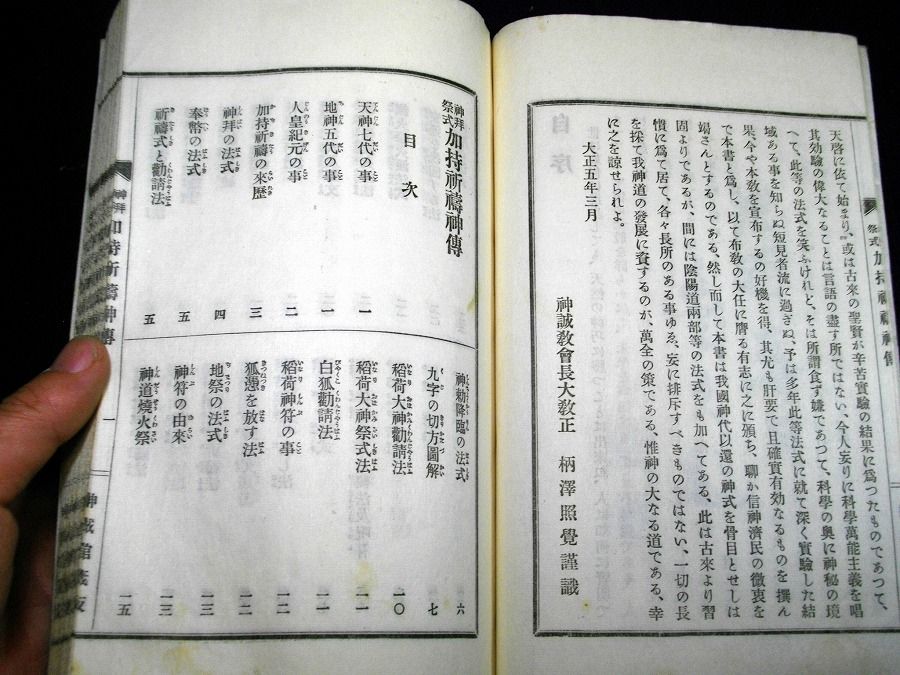 祭式 加持祈禱神傳
天啓に依て始まり、或は古來の聖賢が辛苦實驗の結果に爲つたものであつて、
其効驗の偉大なることは言語の盡す所ではない、今人妄りに科學萬能主義を唱
へて、此等の法式を笑ふけれど、そは所謂食ず嫌であつて、科學の奥に神秘の境
域ある事を知らぬ短見者流に過ぎぬ、予は多年此等法式に就て深く實驗した結
果、今や本敎を宣布するの好機を得、其尤も肝要で且確實有効なるものを撰ん
で本書と爲し、以て布敎の大任に膺る有志に之に頒ち、聊か信神濟民の微衷を
竭さんとするのである、然し而して本書は我國神代以還の神式を骨目とせしは
固よりであるが、間には陰陽道兩部等の法式をも加へてある、此は古來より習
慣に爲て居て、各々長所のある事ゆゑ、妄に排斥すべきものではない、一切の長
を採て我神道の發展に資するのが、萬全の策である、惟神の大なる道である、幸
に之を諒せられよ。
大正五年三月
神誠敎會長大敎正 柄澤照覺謹識
神拜祭式 加持祈禱神傳
目次
天神七代の事 一
地神五代の事 一
人皇紀元の事 二
加持祈禱の來歷 三
神拜の法式 四
奉幣の法式 五
祈禱式と勸請法 五
神勅降臨の法式 六
九字の切方圖解 七
稻荷大神勸請法 一〇
稻荷大神祭式法 一一
白狐勸請法 一一
稻荷神符の事 一二
狐憑を放す法 一二
地祭の法式 一三
神符の由來 一三
神道燒火祭 一五
神拜 加持祈禱神傳
一